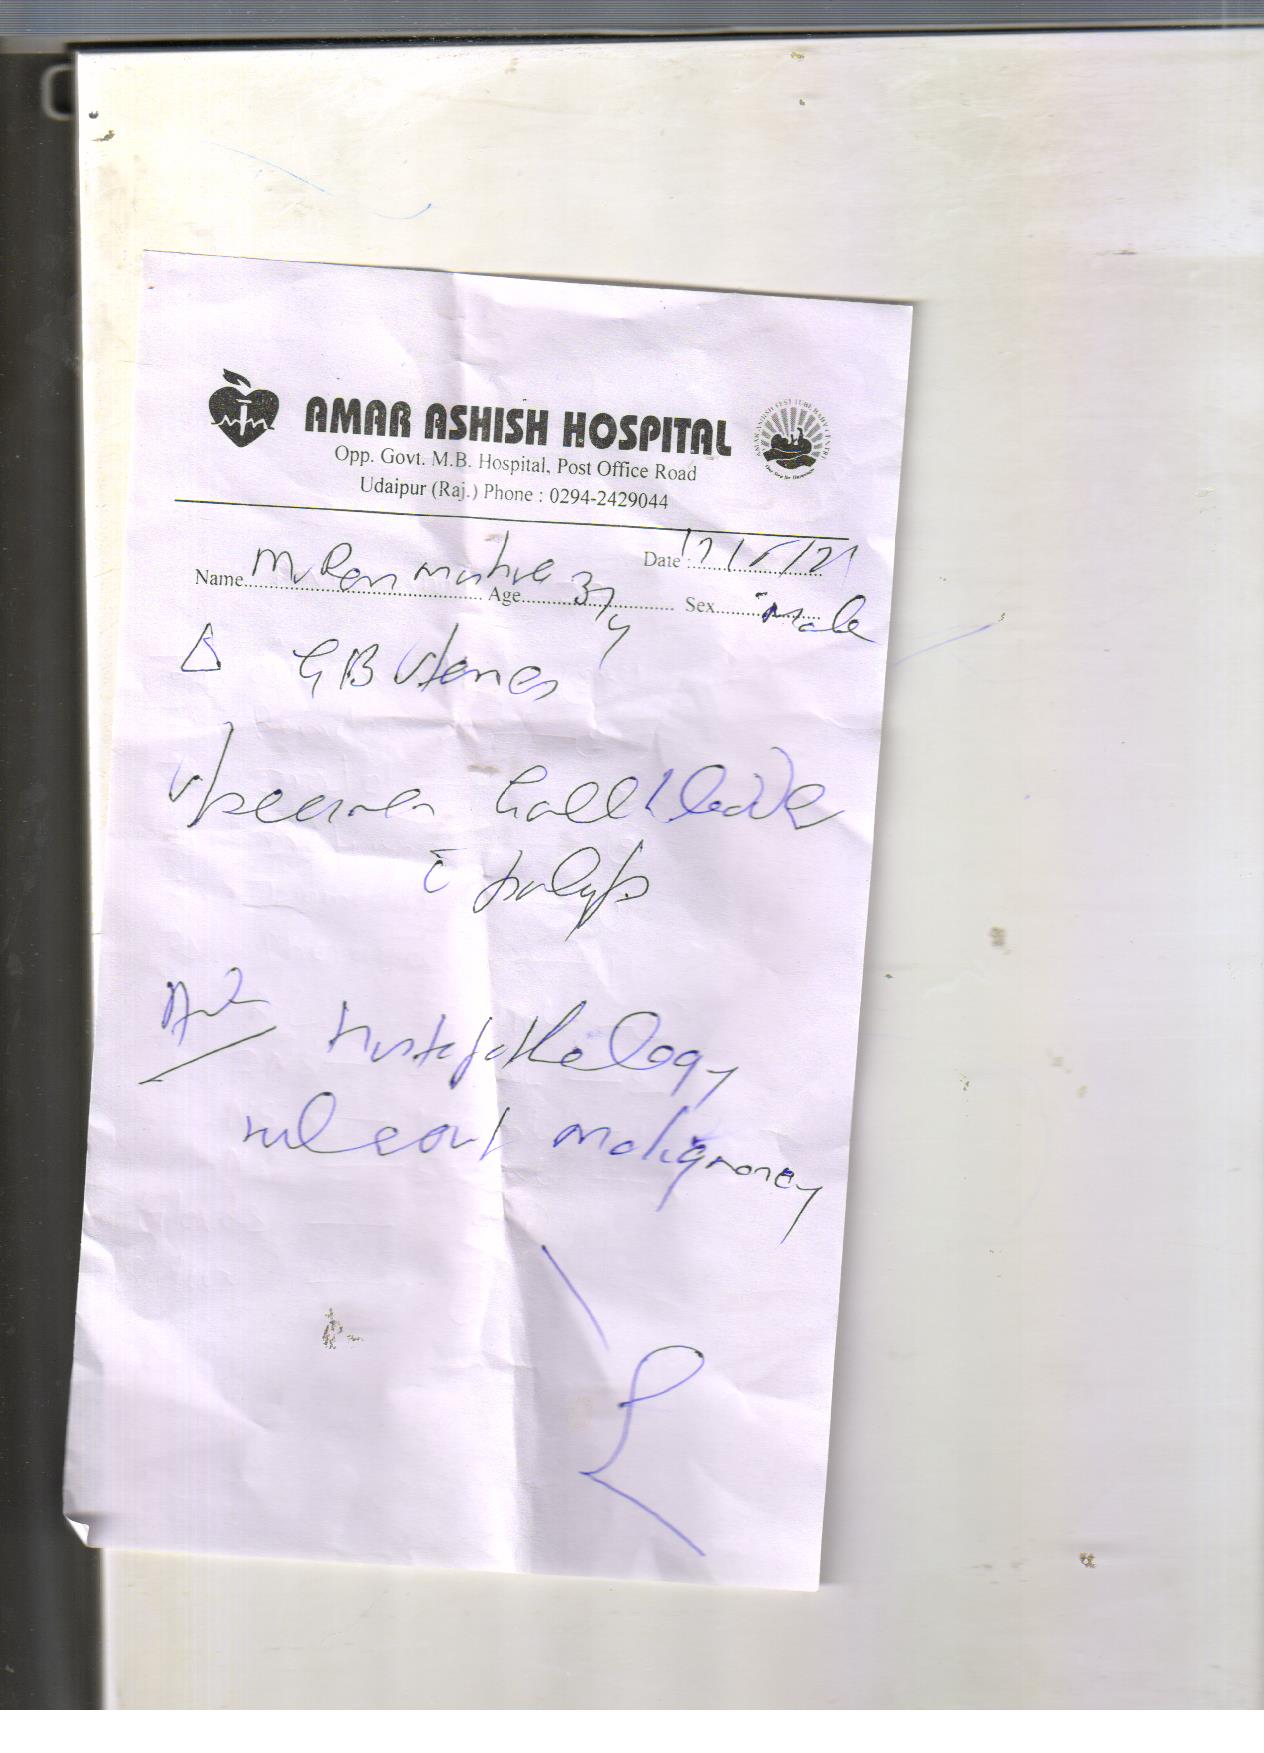 AMAR ASHISH HOSPITAL
Opp. Govt. M.B. Hospital, Post Office Road
Udaipur (Raj.) Phone : 0294-2429044
Date :
Name Mr Age 37y Sex Male
Δ GB stones
specimen Gall bladder
c̄ polyps
Adv Histopathology
rule out malignancy